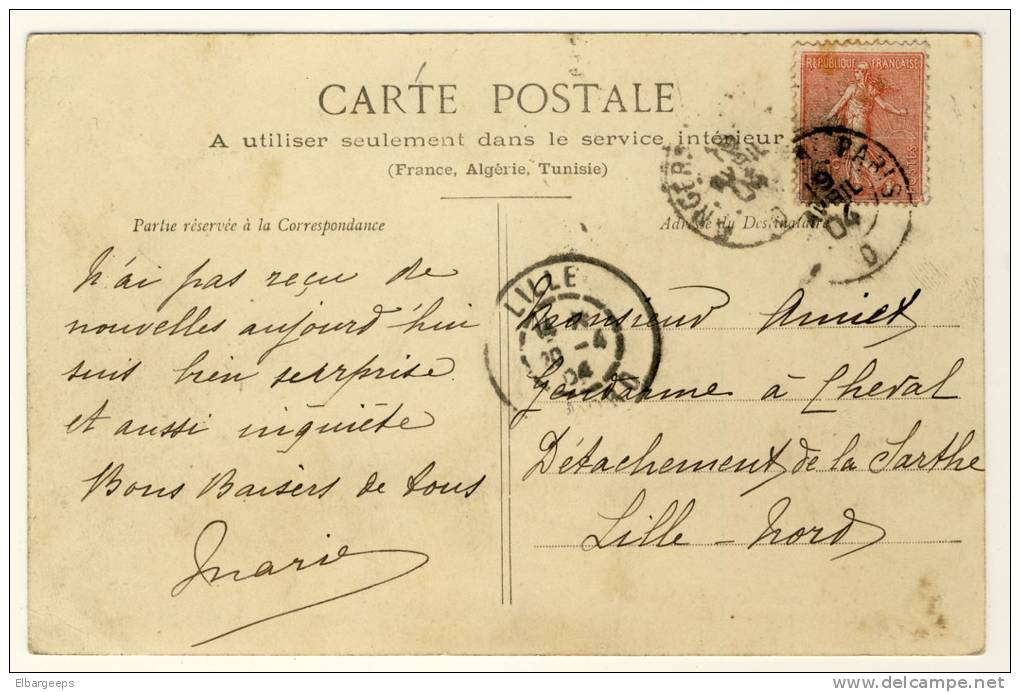 CARTE POSTALE
A utiliser seulement dans le service intérieur
(France, Algérie, Tunisie)
REPUBLIQUE FRANÇAISE
PARIS
AVRIL
04
Partie réservée à la Correspondance
Adresse du Destinataire
LILLE
-4
04
N'ai pas reçu de
nouvelles aujourd'hui
suis bien surprise
et aussi inquiète
Bons Baisers de tous
Marie
Monsieur Amiet
Gendarme à Cheval
Détachement de la Sarthe
Lille - Nord
Elbargeeps
www.delcampe.net